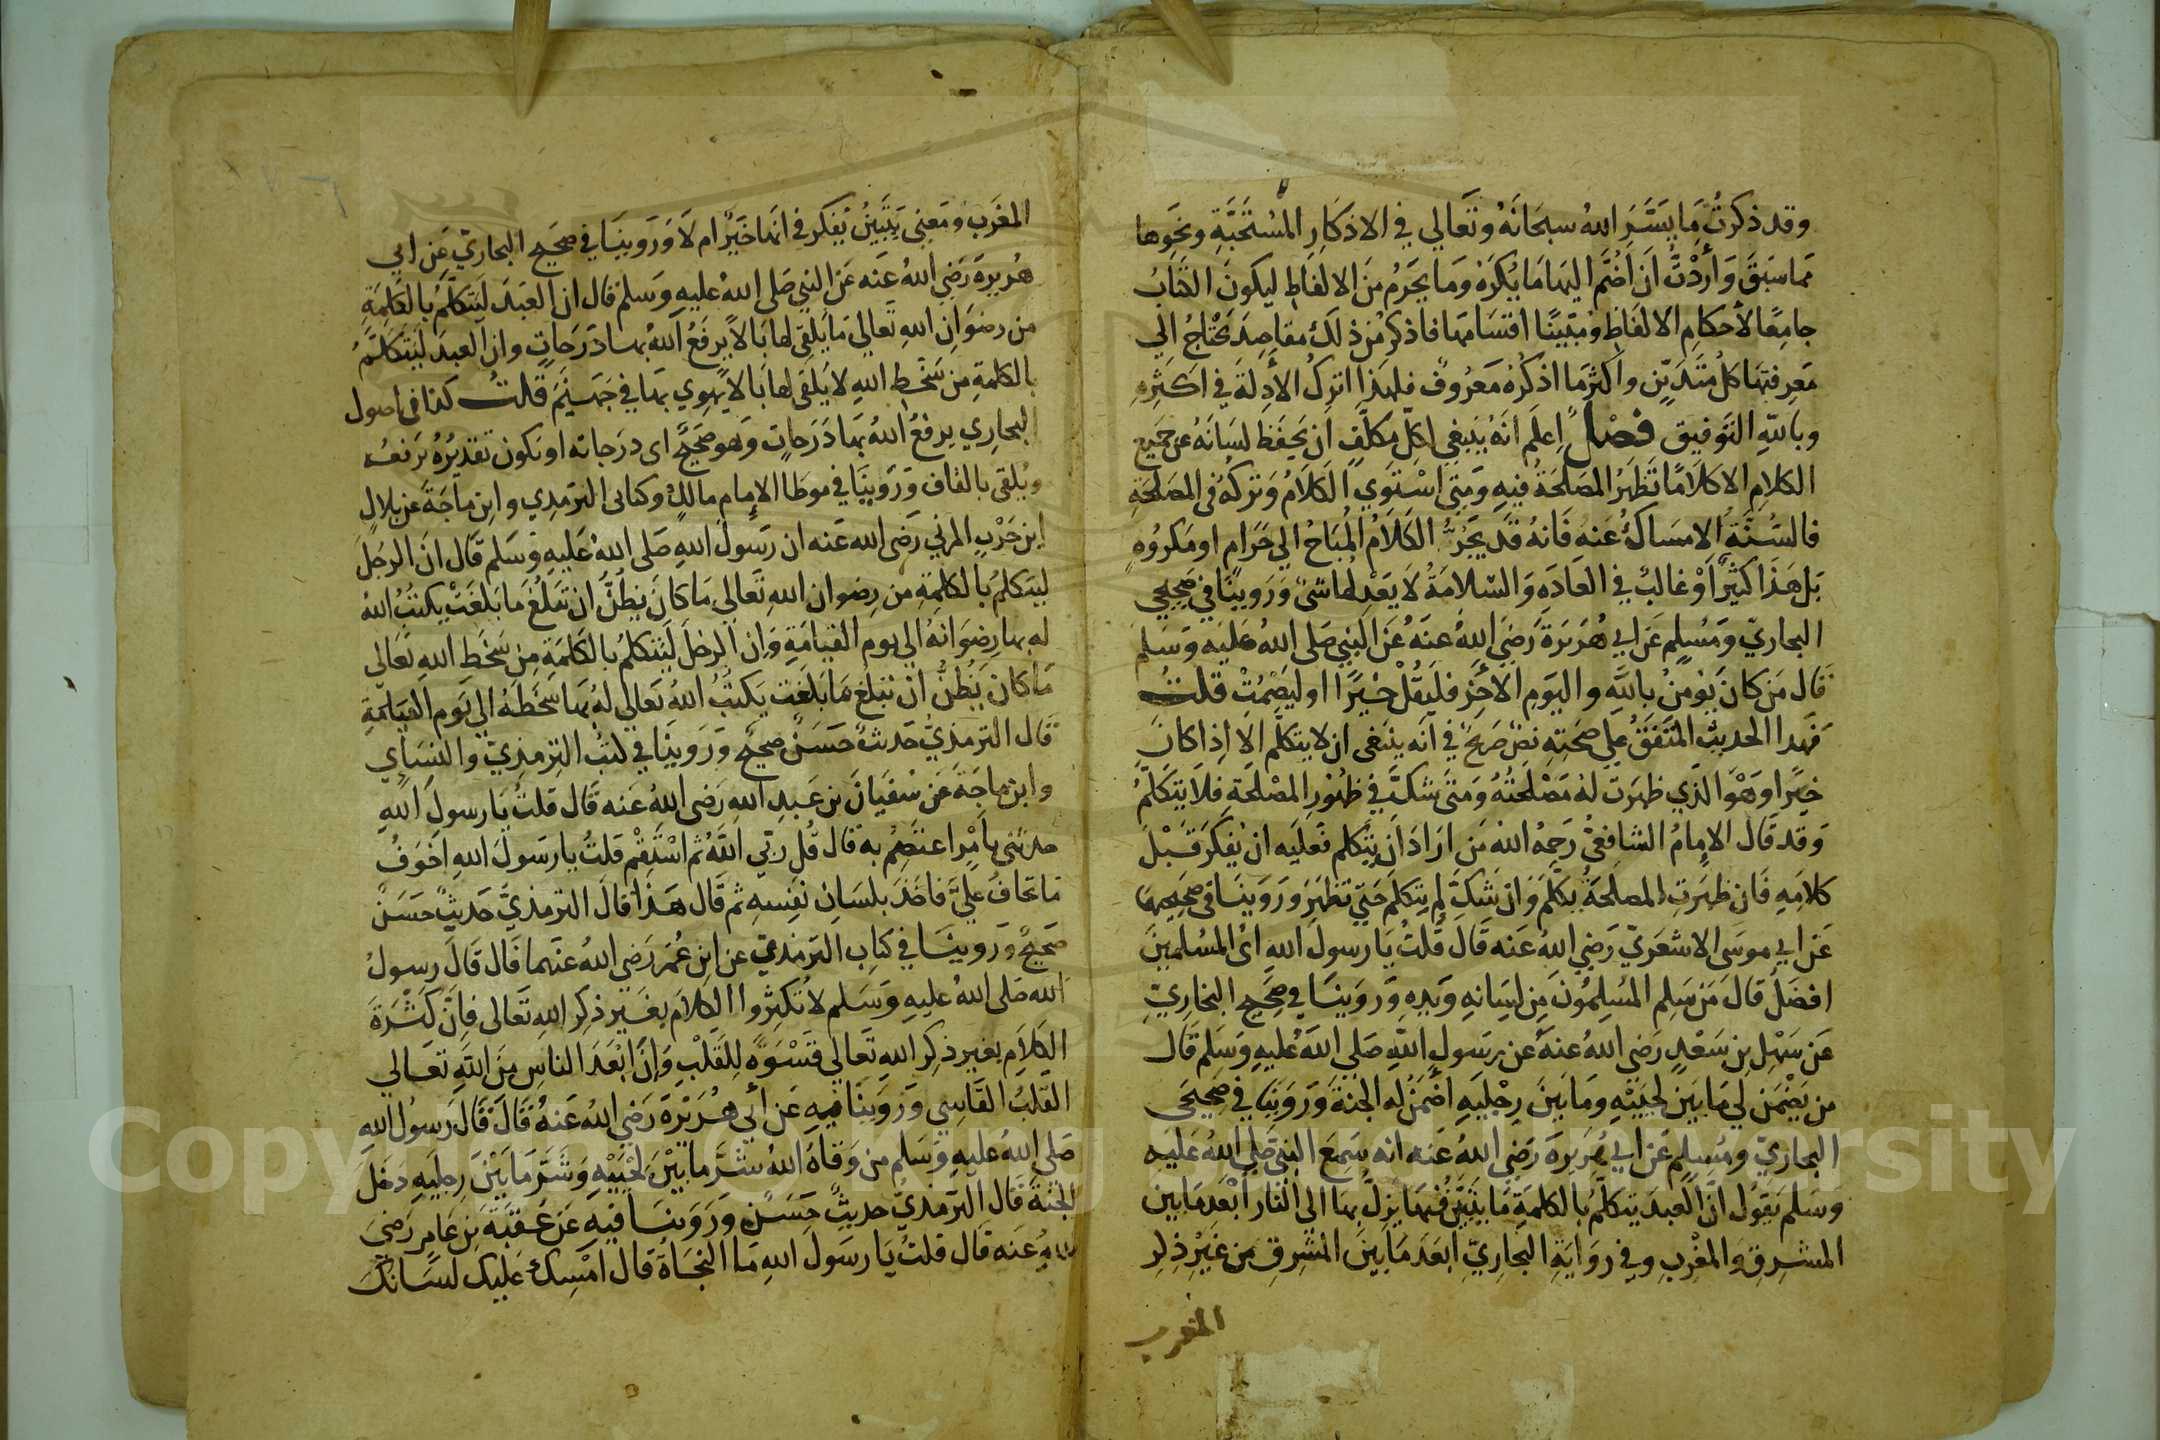 وقد ذكرتُ ما يسَّرَ الله سبحانه وتعالي في الاذكار المستحبة ونحوها
مما سبق وأردْت أن أضمّ اليها ما يكره وما يحرم من الالفاظ ليكون الكتاب
جامعًا لأحكام الالفاظ ومبينًا اقسامها فاذكر من ذلك مقاصد يحتاج الي
معرفتها كل متدين واكثر ما اذكره معروف فلهذا اترك الأدلة في اكثره
وبالله التوفيق فصل اعلم انه ينبغي لكل مكلف ان يحفظ لسانه عن جميع
الكلام الا كلامًا تظهر المصلحة فيه ومتى استوي الكلام وتركه في المصلحة
فالسنة الامساك عنه فانه قد يجرّ الكلام المباح الي حرام او مكروه
بل هذا كثير او غالب في العادة والسلامة لا يعدلها شئ وروينا في صحيحي
البخاري ومسلم عن ابي هريرة رضي الله عنه عن النبي صلى الله عليه وسلم
قال من كان يؤمن بالله واليوم الاخر فليقل خيرًا او ليصمت قلت
فهذا الحديث المتفق علي صحته نص صريح في انه ينبغي ان لا يتكلم الا اذا كان
خيرًا وهو الذي ظهرت له مصلحته ومتى شك في ظهور المصلحة فلا يتكلم
وقد قال الإمام الشافعي رحمه الله من اراد ان يتكلم فعليه ان يفكر قبل
كلامه فان ظهرت المصلحة تكلم وان شك لم يتكلم حتي تظهر وروينا في صحيحهما
عن ابي موسى الاشعري رضي الله عنه قال قلت يا رسول الله اي المسلمين
افضل قال من سلم المسلمون من لسانه ويده وروينا في صحيح البخاري
عن سهل بن سعد رضي الله عنه عن رسول الله صلي الله عليه وسلم قال
من يضمن لي ما بين لحييه وما بين رجليه اضمن له الجنة وروينا في صحيحي
البخاري ومسلم عن ابي هريرة رضي الله عنه انه سمع النبي صلي الله عليه
وسلم يقول ان العبد يتكلم بالكلمة ما يتبين فيها يزل بها الى النار أبعد ما بين
المشرق والمغرب وفي رواية البخاري ابعد ما بين المشرق من غير ذكر
المغرب
المغرب ومعنى يتبين يفكر في انها خير ام لا وروينا في صحيح البخاري عن ابي
هريرة رضي الله عنه عن النبي صلى الله عليه وسلم قال ان العبد ليتكلم بالكلمة
من رضوان الله تعالي ما يلقى لها بالاً يرفع الله بها درجات وان العبد ليتكلم
بالكلمة من سخط الله لا يلقى لها بالا يهوي بها في جهنم قلت كذا في اصول
البخاري يرفع الله بها درجات وهو صحيح اى درجاته او يكون تقديره يرفعه
ويلقى بالقاف وروينا في موطا الإمام مالك وكتابى الترمذي وابن ماجة عن بلال
ابن حرب المزني رضى الله عنه ان رسول الله صلى الله عليه وسلم قال ان الرجل
ليتكلم بالكلمة من رضوان الله تعالي ما كان يظن ان تبلغ ما بلغت يكتب الله
له بها رضوانه الي يوم القيامة وان الرجل ليتكلم بالكلمة من سخط الله تعالى
ما كان يظن ان تبلغ ما بلغت يكتب الله تعالي له بها سخطه الي يوم القيامة
قال الترمذي حديث حسن صحيح وروينا في كتب الترمذي والنساي
وابن ماجة عن سفيان بن عبد الله رضى الله عنه قال قلت يا رسول الله
حدثني بامر اعتصم به قال قل ربي الله ثم استقم قلت يا رسول الله اخوف
ما تخاف علي فاخذ بلسان نفسه ثم قال هذا قال الترمذي حديث حسن
صحيح وروينا في كتاب الترمذي عن ابن عمر رضي الله عنهما قال قال رسول
الله صلى الله عليه وسلم لا تكثروا الكلام بغير ذكر الله تعالى فان كثرة
الكلام بغير ذكر الله تعالي قسوة للقلب وان ابعد الناس من الله تعالي
القلب القاسي وروينا فيه عن أبي هريرة رضي الله عنه قال قال رسول الله
صلى الله عليه وسلم من وقاه الله شر ما بين لحييه وشر ما بين رجليه دخل
الجنة قال الترمذي حديث حسن وروينا فيه عن عقبة بن عامر رضي
الله عنه قال قلت يا رسول الله ما النجاة قال امسك عليك لسانك